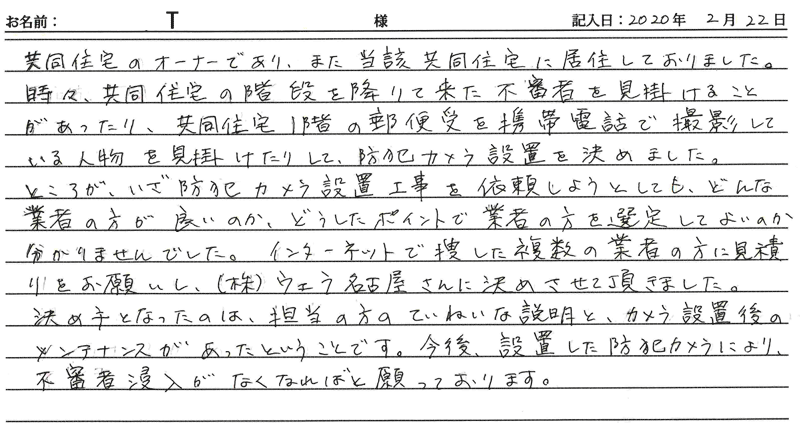 お名前： T 様 記入日：2020年 2月 22日
共同住宅のオーナーであり、また当該共同住宅に居住しておりました。
時々、共同住宅の階段を降りて来た不審者を見掛けること
があったり、共同住宅1階の郵便受を携帯電話で撮影して
いる人物を見掛けたりして、防犯カメラ設置を決めました。
ところが、いざ防犯カメラ設置工事を依頼しようとしても、どんな
業者の方が良いのか、どうしたポイントで業者の方を選定してよいのか
分かりませんでした。インターネットで捜した複数の業者の方に見積
りをお願いし、(株)ウェラ名古屋さんに決めさせて頂きました。
決め手となったのは、担当の方のていねいな説明と、カメラ設置後の
メンテナンスがあったということです。今後、設置した防犯カメラにより、
不審者浸入がなくなればと願っております。